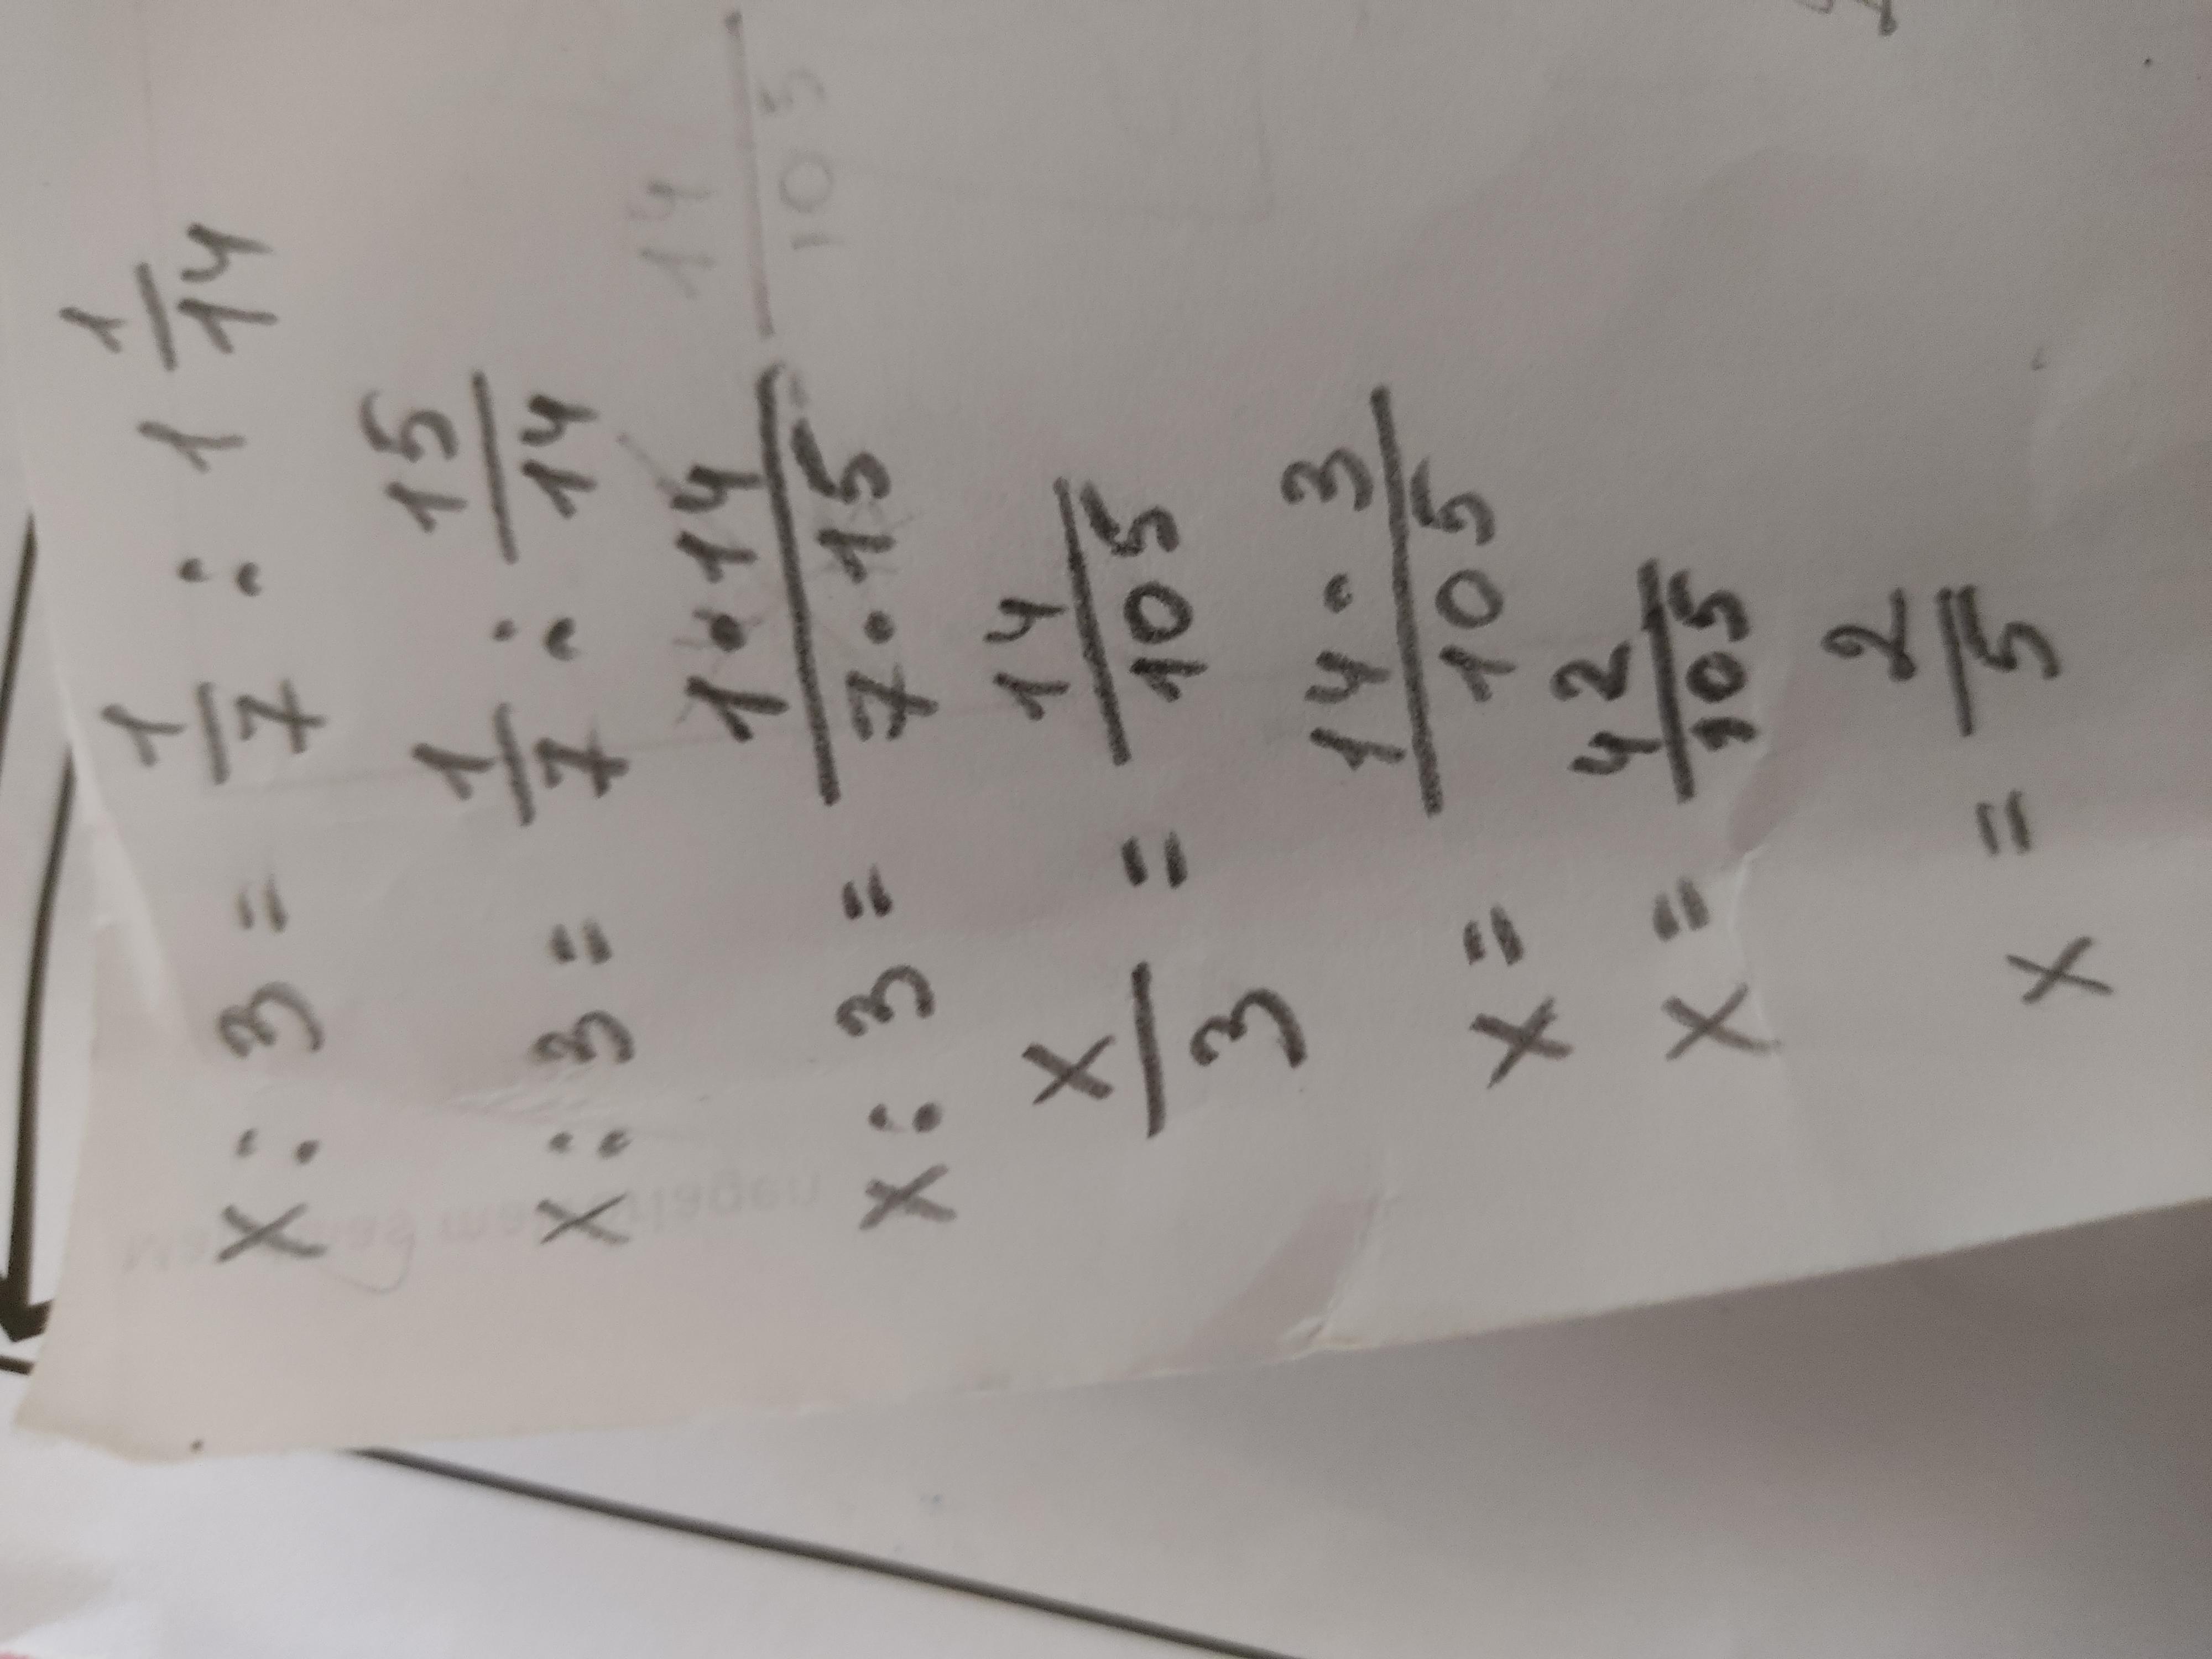 x : 3 = 1/7 : 1 1/14
x : 3 = 1/7 : 15/14
x : 3 = 1•14/7•15 14/105
x/3 = 14/105
x = 14•3/105
x = 42/105
x = 2/5